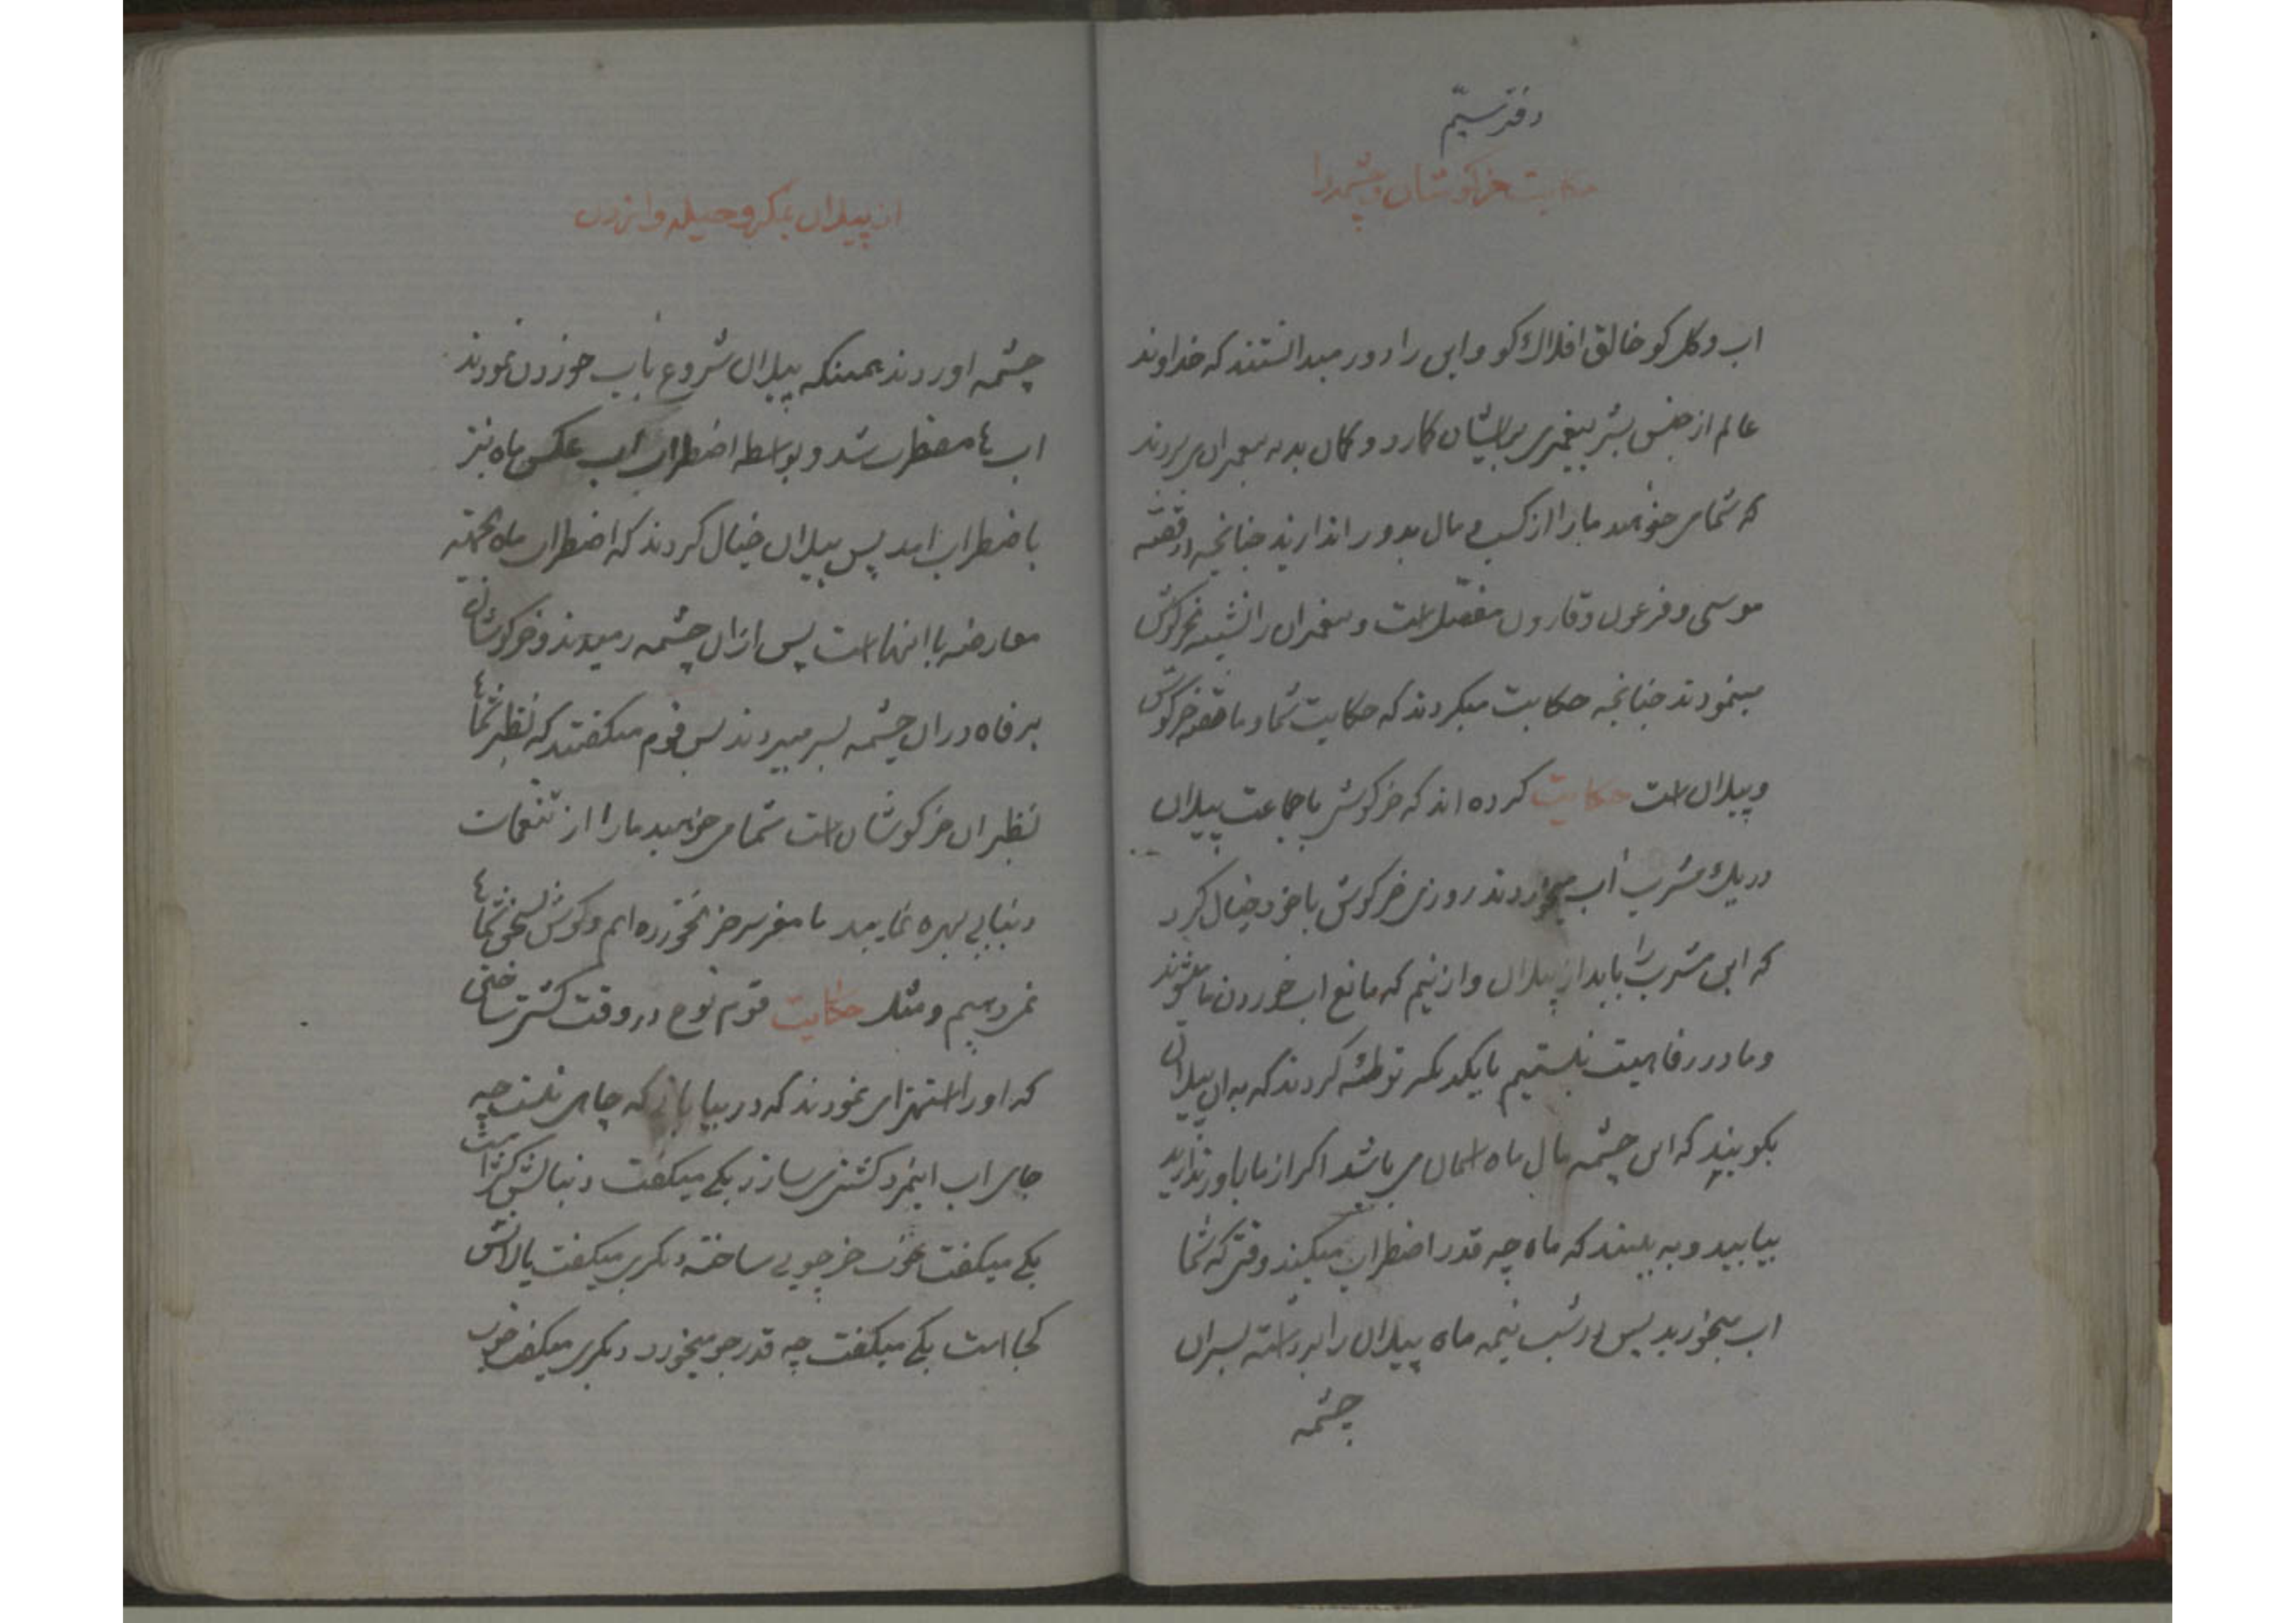 دفتر سیّم
حکایت خرکوشان و چشمه را
اب و کل کو خالق افلاک کو و این را دور میدانستند که خداوند
عالم از جنس بشر پیغمبری برایشان کمارد و کمان بد به پیغمبران می بردند
که شما می خواهید ما را از کسب مال بدور اندازید چنانچه در قصّه
موسی و فرعون و قارون مفصّل است و پیغمبران را تشبیه بخرکوش
مینمودند چنانچه حکایت میکردند که حکایت شما و ما قصه خرکوش
و پیلان است حکایت کرده اند که خرکوش با جماعت پیلان
در یک مشرب اب میخوردند روزی خرکوش با خود خیال کرد
که این مشرب را باید از پیلان وازنیم که مانع اب خوردن ما میشوند
و ما در رفاهیت نیستیم با یکدیکر توطئه کردند که به ان پیلان
بکویند که این چشمه مال ماه اسمان می باشد اکر از ما باور ندارید
بیایید و به بینید که ماه چه قدر اضطراب میکند وقتی که شما
اب میخورید پس در شب نیمه ماه پیلان را برداشته بسران
چشمه
از پیلان بمکر و حیله وا زدن
چشمه اوردند همینکه پیلان شروع باب خوردن نمودند
اب ها مضطرب شد و بواسطه اضطراب اب عکس ماه نیز
باضطراب امد پس پیلان خیال کردند که اضطراب ماه بجهته
معارضه با انها است پس از ان چشمه رمیدند و خرکوشان
برفاه در ان چشمه بسر میبردند پس قوم میکفتند که نظیر شماها
نظیر ان خرکوشان است شما می خواهید ما را از تنعمات
دنیا بی بهره نمایید ما مغز سر خر نخورده ایم و کوش بسخن شماها
نمی دهیم و مثل حکایت قوم نوح در وقت کشتی ساختن
که او را استهزای نمودند که در بیابان که چاهی نیست چه
جای اب اینمرد کشتی می سازد یکی میکفت دنبالش کژ است
یکی میکفت خوب خر چوبی ساخته دیکری میکفت پالانش
کجا است یکی میکفت چه قدر جو میخورد دیکری میکفت خوب